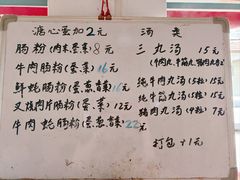 溏心蛋加2元
肠粉(肉末蛋菜)8元
牛肉肠粉(蛋菜)16元
鲜蚝肠粉(蛋葱菜)16元
叉烧肉片肠粉(蛋菜)12元
牛肉蚝肠粉(蛋葱菜)22元
汤类
三丸汤 15元
(牛肉丸、牛筋丸、猪肉丸各2)
纯牛肉丸汤(5粒)15元
纯牛筋丸汤(5粒)15元
猪肉丸汤(4粒)7元
打包+1元